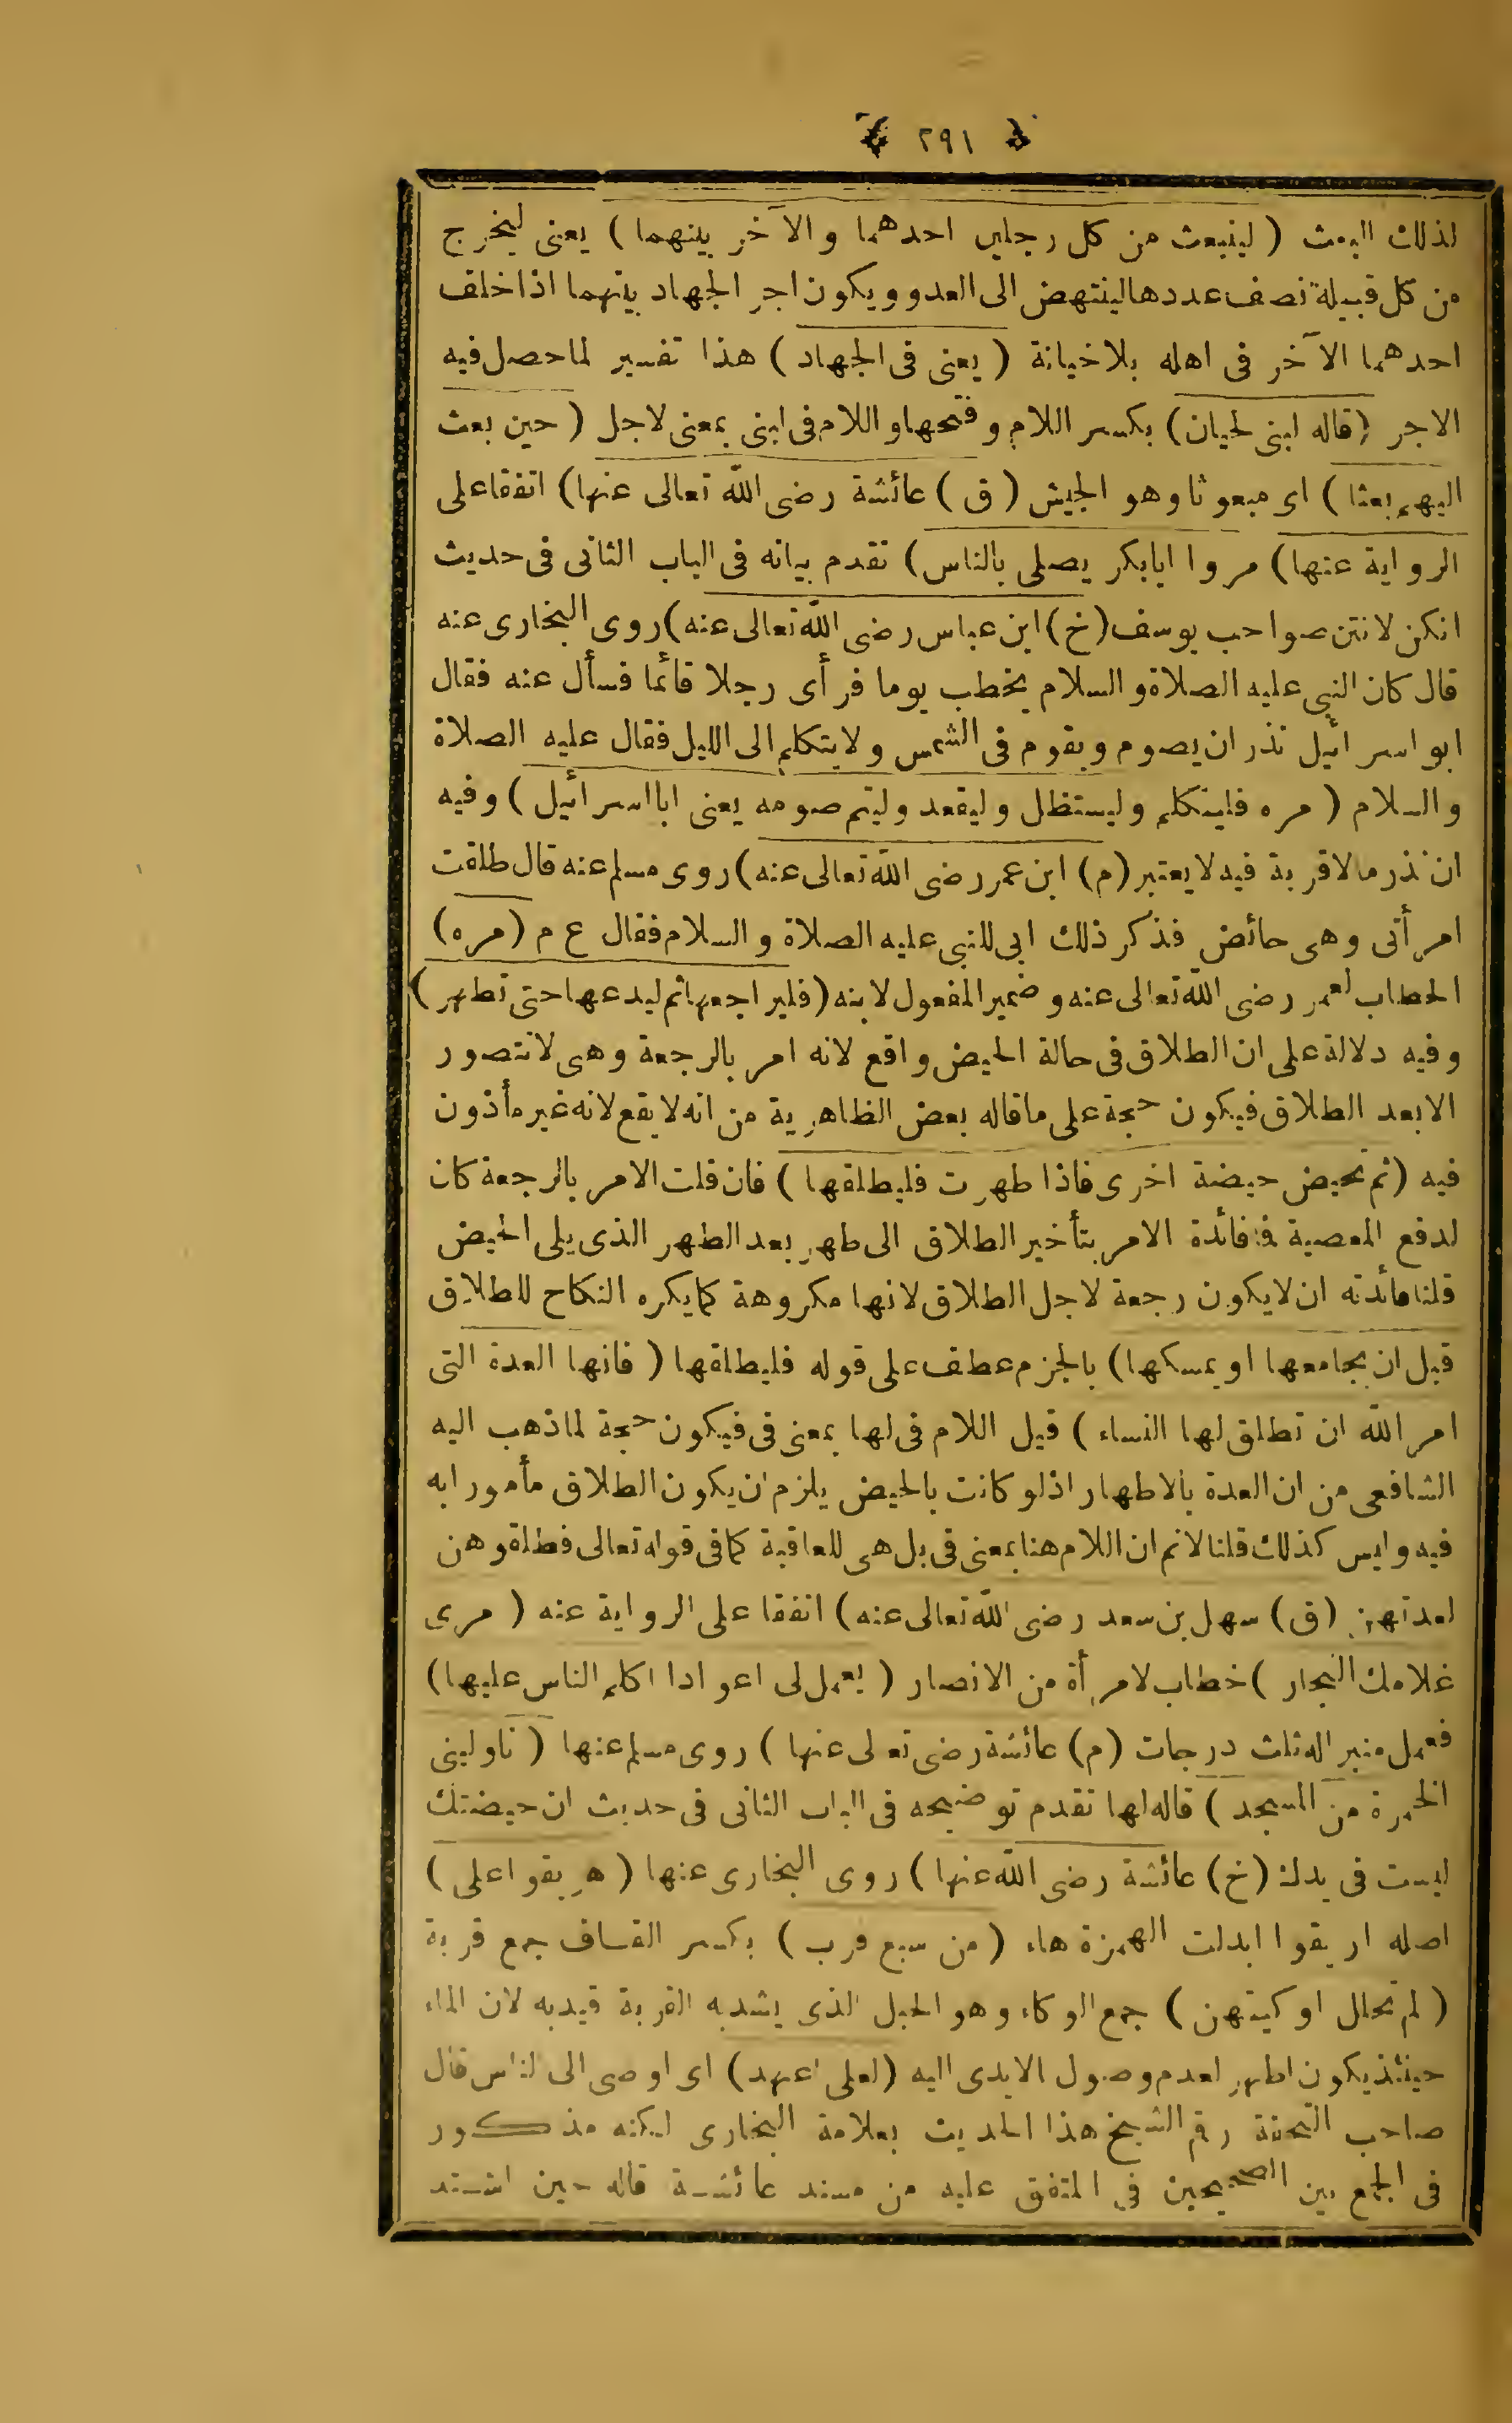 ﴿ ٢٩١ ﴾
لذلك البعث ( لينبعث من كل رجلين احدهما والآخر بينهما ) يعنى ليخرج
من كل قبيلة نصف عددها لينتهض الى العدو ويكون اجر الجهاد بينهما اذا خلف
احدهما الآخر فى اهله بلا خيانة ( يعنى فى الجهاد ) هذا تفسير لما حصل فيه
الاجر ( قاله لبنى لحيان ) بكسر اللام وفتحها واللام فى لبنى بمعنى لاجل ( حين بعث
اليهم بعثا ) اى مبعوثا وهو الجيش ( ق ) عائشة رضى الله تعالى عنها ) اتفقا على
الرواية عنها ) مروا ابابكر يصلى بالناس ) تقدم بيانه فى الباب الثانى فى حديث
انكن لانتن صواحب يوسف ( خ ) ابن عباس رضى الله تعالى عنه ) روى البخارى عنه
قال كان النبى عليه الصلاة والسلام يخطب يوما فرأى رجلا قائما فسأل عنه فقال
ابو اسرائيل نذر ان يصوم ويقوم فى الشمس ولا يتكلم الى الليل فقال عليه الصلاة
والسلام ( مره فليتكلم وليستظل وليقعد وليتم صومه يعنى ابا اسرائيل ) وفيه
ان نذر مالا قربة فيه لا يعتبر ( م ) ابن عمر رضى الله تعالى عنه ) روى مسلم عنه قال طلقت
امرأتى وهى حائض فذكر ذلك ابى للنبى عليه الصلاة والسلام فقال ع م ( مره )
الخطاب لعمر رضى الله تعالى عنه وضمير المفعول لابنه ( فليراجعها ثم ليدعها حتى تطهر )
وفيه دلالة على ان الطلاق فى حالة الحيض واقع لانه امر بالرجعة وهى لا تتصور
الا بعد الطلاق فيكون حجة على ما قاله بعض الظاهرية من انه لا يقع لانه غير مأذون
فيه ( ثم تحيض حيضة اخرى فاذا طهرت فليطلقها ) فان قلت الامر بالرجعة كان
لدفع المعصية فما فائدة الامر بتأخير الطلاق الى طهر بعد الطهر الذى يلى الحيض
قلنا فائدته ان لا يكون رجعة لاجل الطلاق لانها مكروهة كما يكره النكاح للطلاق
قبل ان يجامعها او يمسكها ) بالجزم عطف على قوله فليطلقها ( فانها العدة التى
امر الله ان تطلق لها النساء ) قيل اللام فى لها بمعنى فى فيكون حجة لما ذهب اليه
الشافعى من ان العدة بالاطهار اذ لو كانت بالحيض يلزم ان يكون الطلاق مأمورا به
فيه وليس كذلك قلنا لانم ان اللام هنا بمعنى فى بل هى للعاقبة كما فى قوله تعالى فطلقوهن
لعدتهن ( ق ) سهل بن سعد رضى الله تعالى عنه ) اتفقا على الرواية عنه ( مرى
غلامك النجار ) خطاب لامرأة من الانصار ( يعمل لى اعوادا اكلم الناس عليها )
فعمل منبرا له ثلث درجات ( م ) عائشة رضى تعالى عنها ) روى مسلم عنها ( ناولينى
الخمرة من المسجد ) قاله لها تقدم توضيحه فى الباب الثانى فى حديث ان حيضتك
ليست فى يدك ( خ ) عائشة رضى الله عنها ) روى البخارى عنها ( هريقوا على )
اصله اريقوا ابدلت الهمزة هاء ( من سبع قرب ) بكسر القاف جمع قربة
( لم تحلل اوكيتهن ) جمع الوكاء وهو الحبل الذى يشد به القربة قيد به لان الماء
حينئذ يكون اطهر لعدم وصول الايدى اليه ( لعلى اعهد ) اى اوصى الى الناس قال
صاحب التحفة رقم الشيخ هذا الحديث بعلامة البخارى لكنه مذكور
فى الجمع بين الصحيحين فى المتفق عليه من مسند عائشة قاله حين اشتد